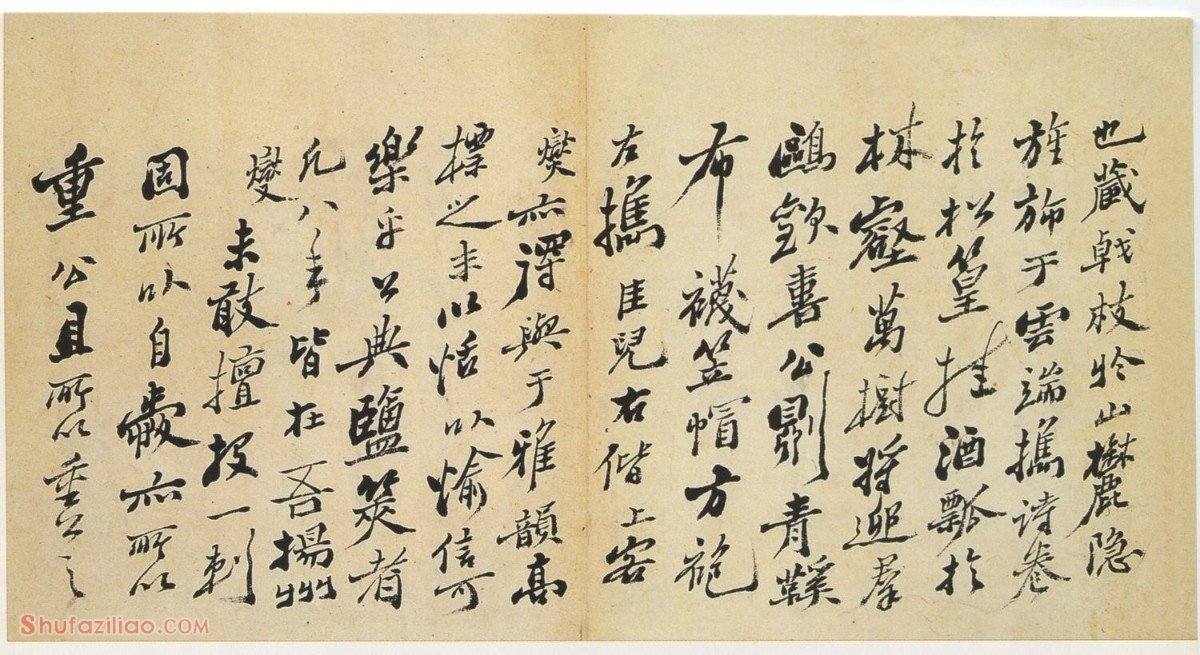 也藏戟枝於山麓隐
旌旆于雲端攜诗卷
於松篁挂酒瓢於
林壑萬樹将迎羣
鷗欵喜公則青鞵
布襪笠帽方袍
左攜佳兒右偕上客
燮亦得與于雅韻高
標之末以恬以愉信可
樂乎公典鹽筴者
凡八年皆在吾揚州
燮未敢擅投一刺
固所以自愛亦所以
重公且所以重公之
Shufaziliao.COM